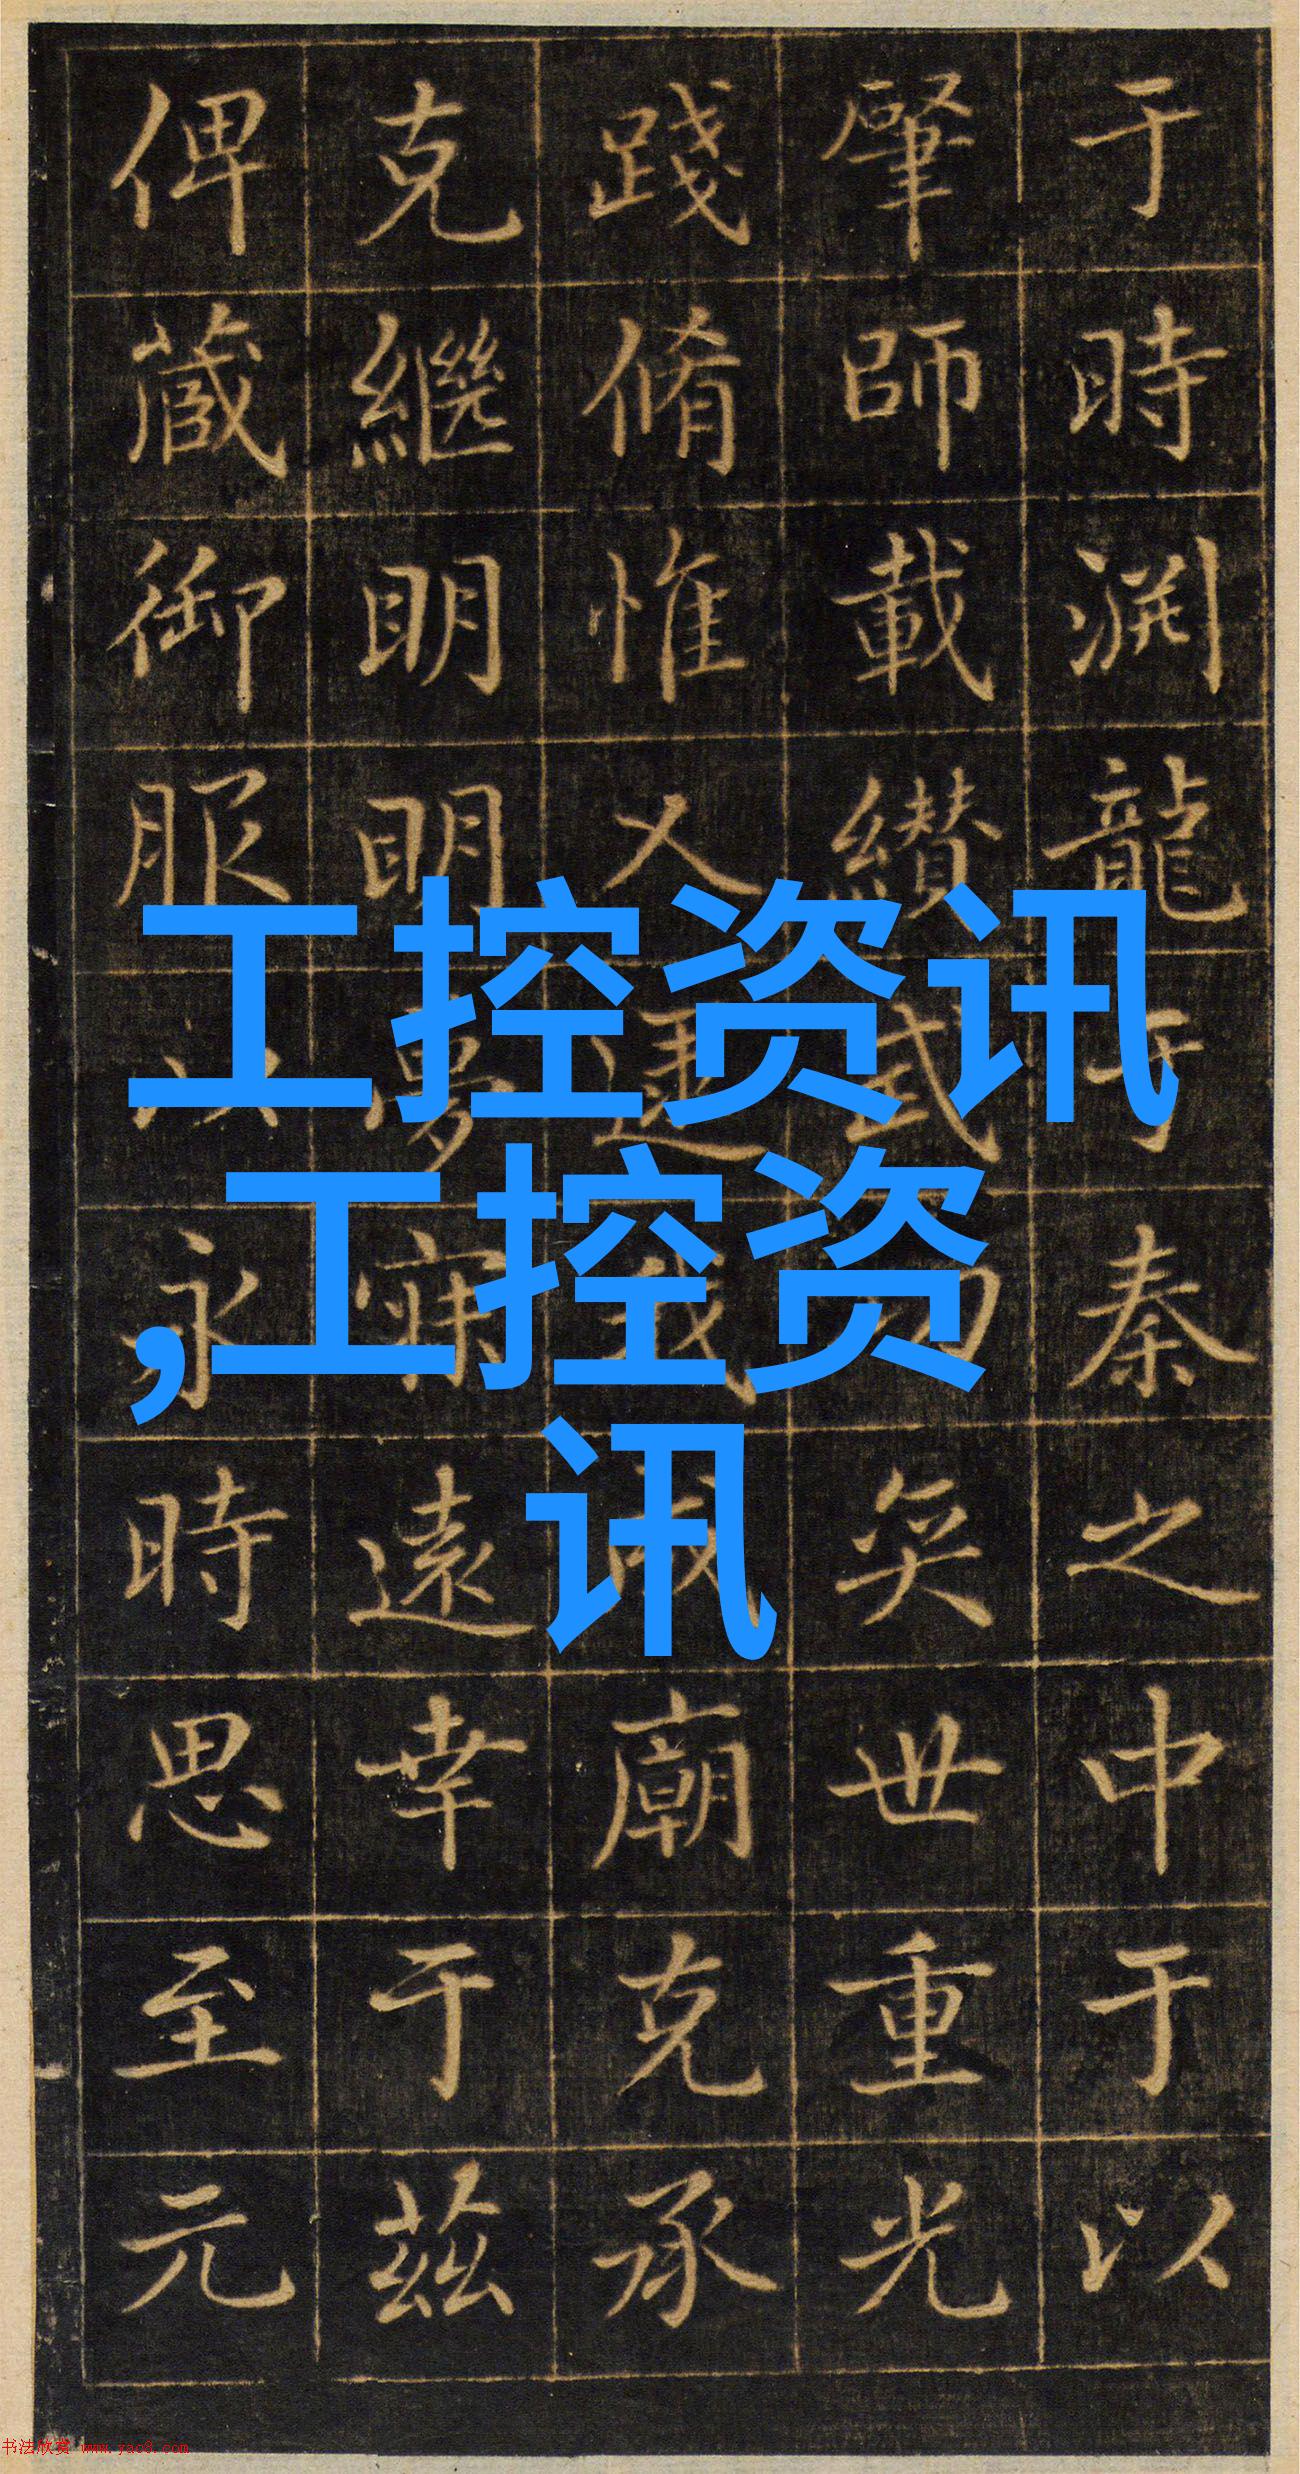 于時渊龍于秦之中于以
肇師載纘武功奕世重光
踐脩惟乂我廟克承
克繼明明夢寐遠幸于茲
俾蕆御服以永時思至元
工控资讯
,工控资
讯
书法欣赏 www.yac8.com